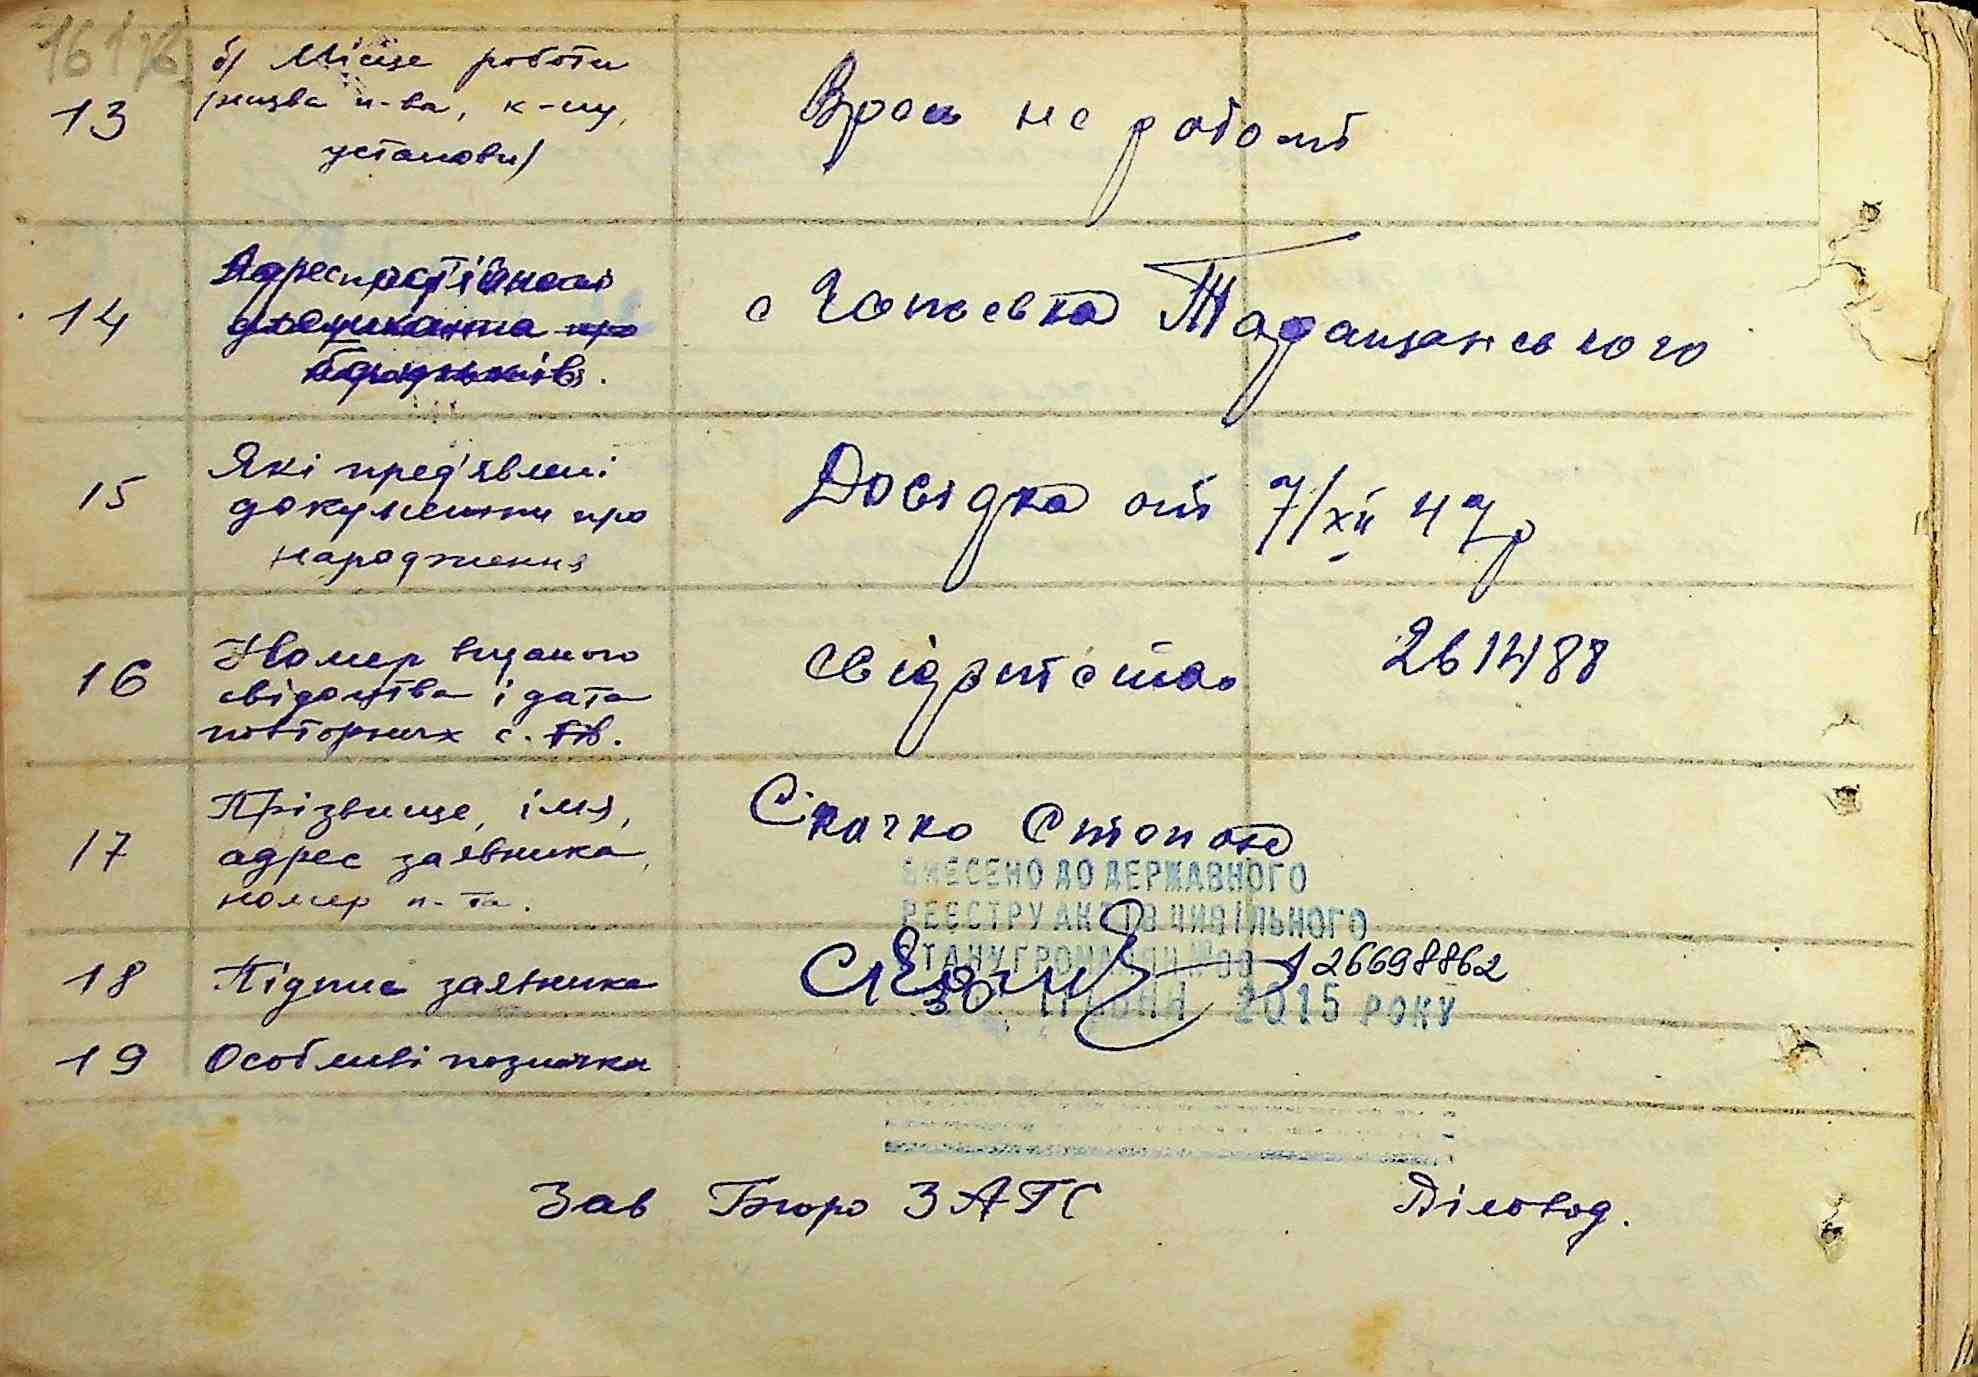 13
б) Місце роботи
(назва п-ва, к-пу,
установи)
не роботі
14
Адрес постійного
про
15
Які пред'явлені
документи про
народження
Довідка от 7/XII 47 р
16
Номер виданого
свідоцтва і дата
повторних с. тв.
17
Прізвище, імя,
адрес заявника,
номер п-та.
Скачко Степан
ВНЕСЕНО ДО ДЕРЖАВНОГО
РЕЄСТРУ АКТІВ ЦИВІЛЬНОГО
СТАНУ ГРОМАДЯН №00 126698862
30 ТРАВНЯ 2015 РОКУ
18
Підпис заявника
19
Особливі позначки
Зав Бюро ЗАГС Діловод.